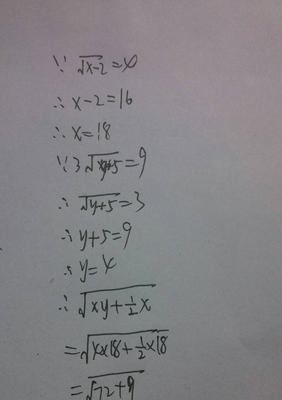 ∵ √(x-2)=4
∴ x-2=16
∴ x=18
∵ 3√(y+5)=9
∴ √(y+5)=3
∴ y+5=9
∴ y=4
∴ √(xy+½x)
=√(4×18+½×18)
=√(72+9)